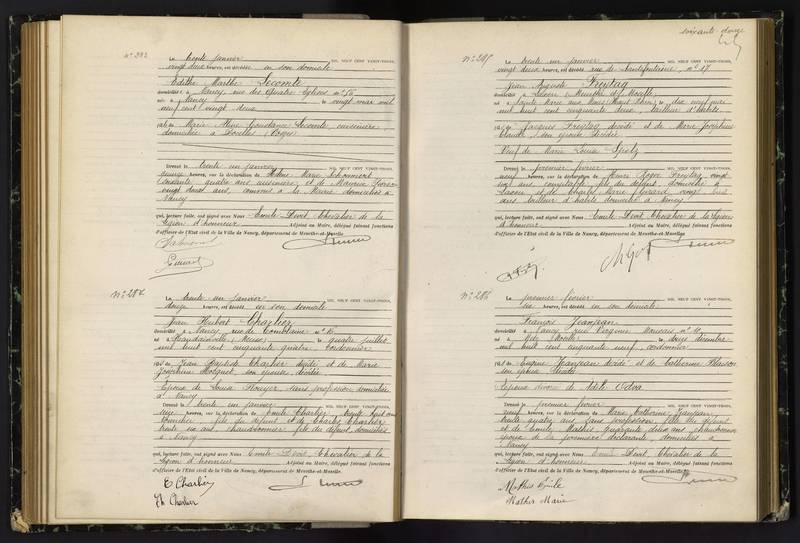 soixante douze
N° 283
Le trente janvier MIL NEUF CENT VINGT-TROIS,
vingt deux heures, est décédée en son domicile
Edithe Marthe Lecomte
domiciliée à Nancy rue des Quatre Eglises n° 56
née à Nancy le vingt mai mil
neuf cent vingt deux
fille de Marie Aline Constance Lecomte, cuisinière,
domiciliée à (Vosges)
Dressé le trente un janvier MIL NEUF CENT VINGT-TROIS,
heures, sur la déclaration de Marie
soixante quatre ans et de Maurice
vingt deux ans, à la Mairie domiciliés à
Nancy
qui, lecture faite, ont signé avec Nous Emile Chevalier de la
Légion d'honneur Adjoint au Maire, délégué faisant fonctions
d'officier de l'Etat civil de la Ville de Nancy, département de Meurthe-et-Moselle
N° 284
Le trente un janvier MIL NEUF CENT VINGT-TROIS,
douze heures, est décédé en son domicile
Jean Hubert Charlier
domicilié à Nancy rue de n° 15
né à (Meuse) le quatre juillet
mil huit cent cinquante quatre, cordonnier
fils de Jean Baptiste Charlier décédé et de Marie
Joséphine son épouse décédée
Epoux de Louise sans profession domiciliée
à Nancy
Dressé le trente un janvier MIL NEUF CENT VINGT-TROIS,
heures, sur la déclaration de Emile Charlier trente huit ans
fils du défunt et de Charles Charlier
trente six ans, chaudronnier fils du défunt, domiciliés
à Nancy
qui, lecture faite, ont signé avec Nous Emile Chevalier de la
Légion d'honneur Adjoint au Maire, délégué faisant fonctions
d'officier de l'Etat civil de la Ville de Nancy, département de Meurthe-et-Moselle.
E Charlier
Ch Charlier
N° 285
Le trente un janvier MIL NEUF CENT VINGT-TROIS,
vingt deux heures, est décédé rue de n° 17
Jean Auguste Freytag
domicilié à Meurthe et Moselle
né à Sainte Marie aux Mines (Haut Rhin) le dix neuf mai
mil huit cent cinquante deux, tailleur d'habits
fils de Jacques Freytag décédé et de Marie Joséphine
Claude, son épouse décédée
Veuf de Marie Louise
Dressé le premier février MIL NEUF CENT VINGT-TROIS,
neuf heures, sur la déclaration de Henri Roger Freytag vingt
six ans, comptable fils du défunt, domicilié à
et de Marie Gérard, vingt huit
ans tailleur d'habits domicilié à Nancy
qui, lecture faite, ont signé avec Nous Emile Chevalier de la Légion
d'honneur Adjoint au Maire, délégué faisant fonctions
d'officier de l'Etat civil de la Ville de Nancy, département de Meurthe-et-Moselle
N° 286
Le premier février MIL NEUF CENT VINGT-TROIS,
six heures, est décédé en son domicile
François Jeanjean
domicilié à Nancy rue Virginie Mauvais n° 10
né à Metz (Moselle) le douze décembre
mil huit cent cinquante neuf, cordonnier
fils de Eugène Jeanjean décédé et de Catherine
son épouse décédée
Epoux divorcé de Adèle
Dressé le premier février MIL NEUF CENT VINGT-TROIS,
neuf heures, sur la déclaration de Marie Catherine Jeanjean
trente quatre ans sans profession fille du défunt
et de Emile Mathis quarante deux ans chaudronnier
époux de la première déclarante, domiciliés à
Nancy
qui, lecture faite, ont signé avec Nous Emile Chevalier de la
Légion d'honneur Adjoint au Maire, délégué faisant fonctions
d'officier de l'Etat civil de la Ville de Nancy, département de Meurthe-et-Moselle
Mathis Emile
Mathis Marie